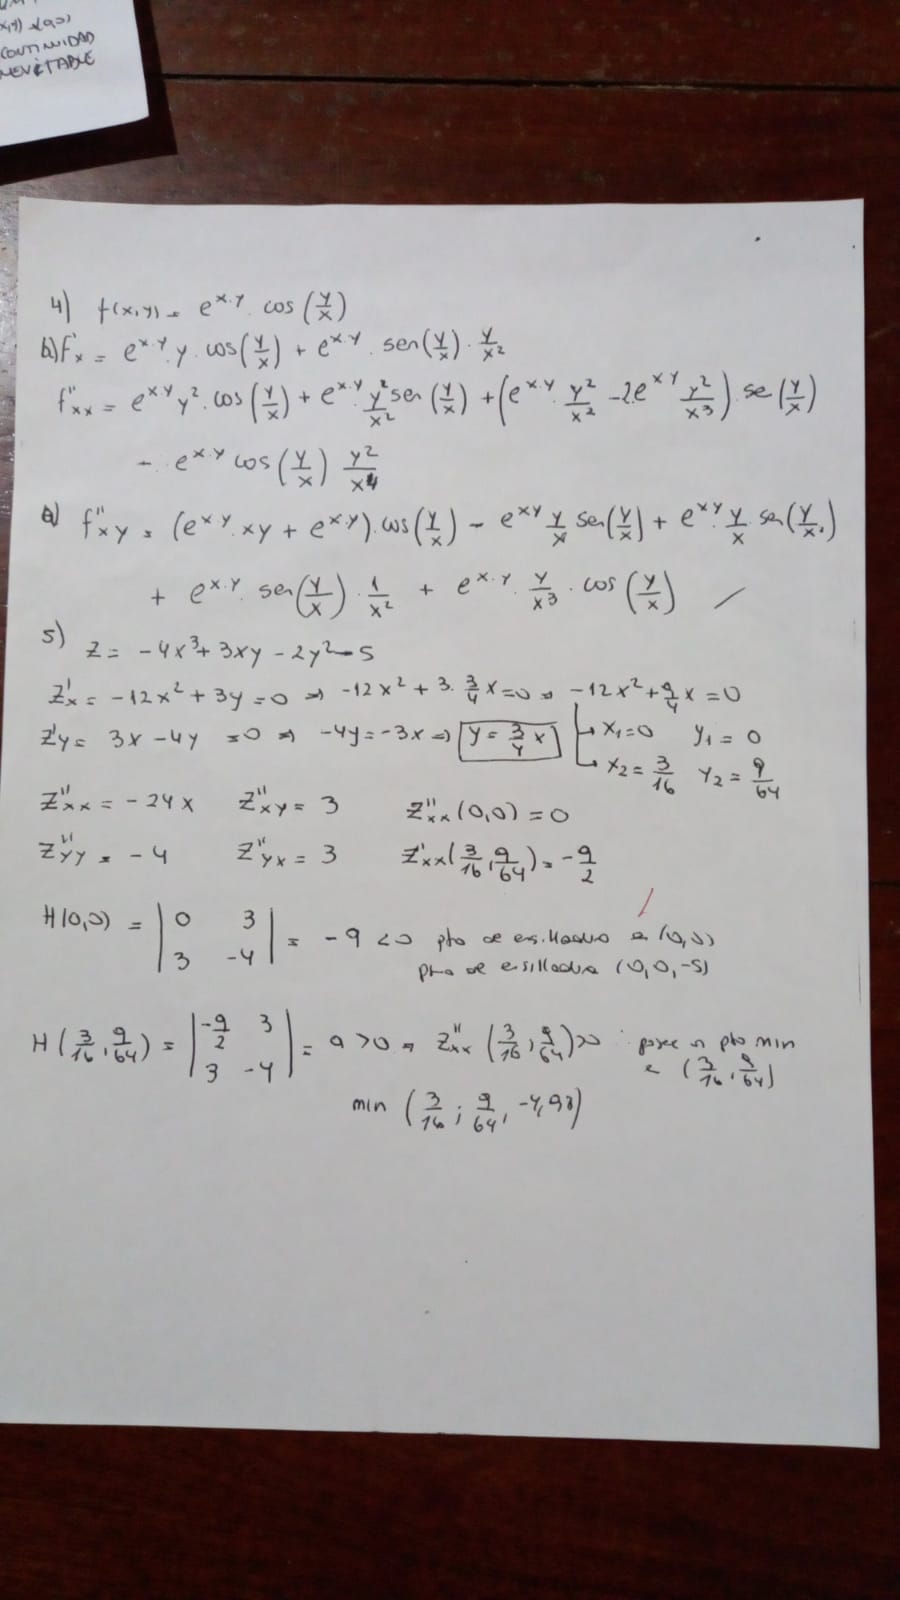 x,y) →(0,0)
CONTINUIDAD
NEVITABLE
4) f(x,y) = e^{x.y} cos(y/x)
b) f'x = e^{x.y} y. cos(y/x) + e^{x.y}. sen(y/x). y/x²
f''xx = e^{x.y} y². cos(y/x) + e^{x.y}. y²/x² sen(y/x) + (e^{x.y}. y²/x² - 2.e^{xy} y²/x³). se(y/x)
- e^{x.y} cos(y/x) y²/x⁴
a) f''xy = (e^{xy}. xy + e^{x.y}). cos(y/x) - e^{xy} y/x sen(y/x) + e^{xy}. y/x. sen(y/x)
+ e^{x.y}. sen(y/x). 1/x² + e^{x.y}. y/x³. cos(y/x)
5) Z = -4x³ + 3xy - 2y² - 5
Z'x = -12x² + 3y = 0 ⇒ -12x² + 3. 3/4 x = 0 ⇒ -12x² + 9/4 x = 0
Z'y = 3x - 4y = 0 ⇒ -4y = -3x ⇒ y = 3/4 x ↳ x₁=0 y₁=0
↳ x₂ = 3/16 y₂ = 9/64
Z''xx = -24x Z''xy = 3 Z''xx (0,0) = 0
Z''yy = -4 Z''yx = 3 Z''xx(3/16, 9/64) = -9/2
H(0,0) = |0 3| = -9 <0 pto de ensilladura (0,0)
|3 -4| pto de ensilladura (0,0,-5)
H(3/16, 9/64) = |-9/2 3| = 9 >0 ⇒ Z''xx (3/16, 9/64)>0 posee n pto min
|3 -4| e (3/16, 9/64)
min (3/16; 9/64, -4,98)